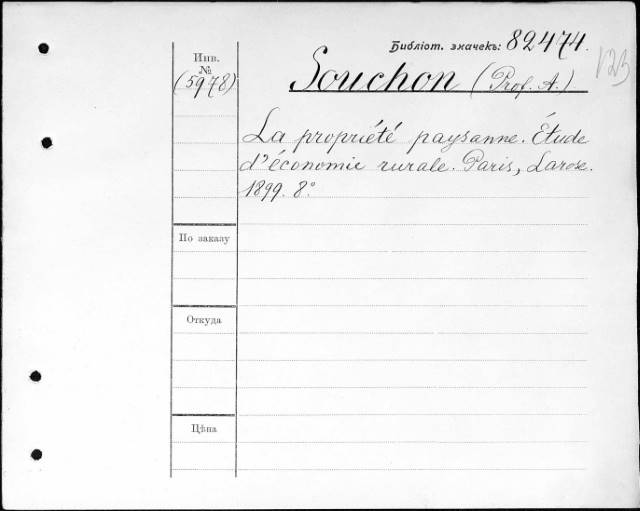 Библіот. значекъ: 82474.
Инв.
№
(5978)
Souchon (Prof. A.)
La propriété paysanne. Étude
d'économie rurale. Paris, Larose.
1899. 8°
По заказу
Откуда
Цѣна